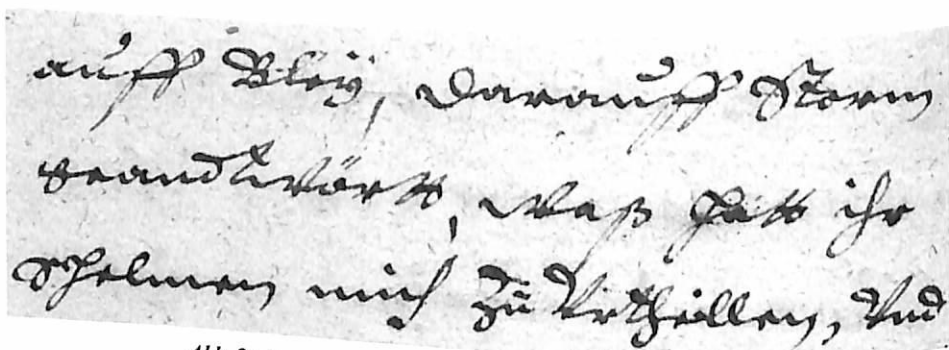 auff Bleÿ, darauff Storm
veandtwörtt, waß hatt ihr
Schelmen mich zu Vrtheillen, Vnd